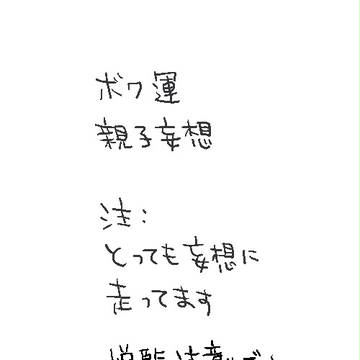 ボク運
親子妄想
注:
とっても妄想に
走ってます